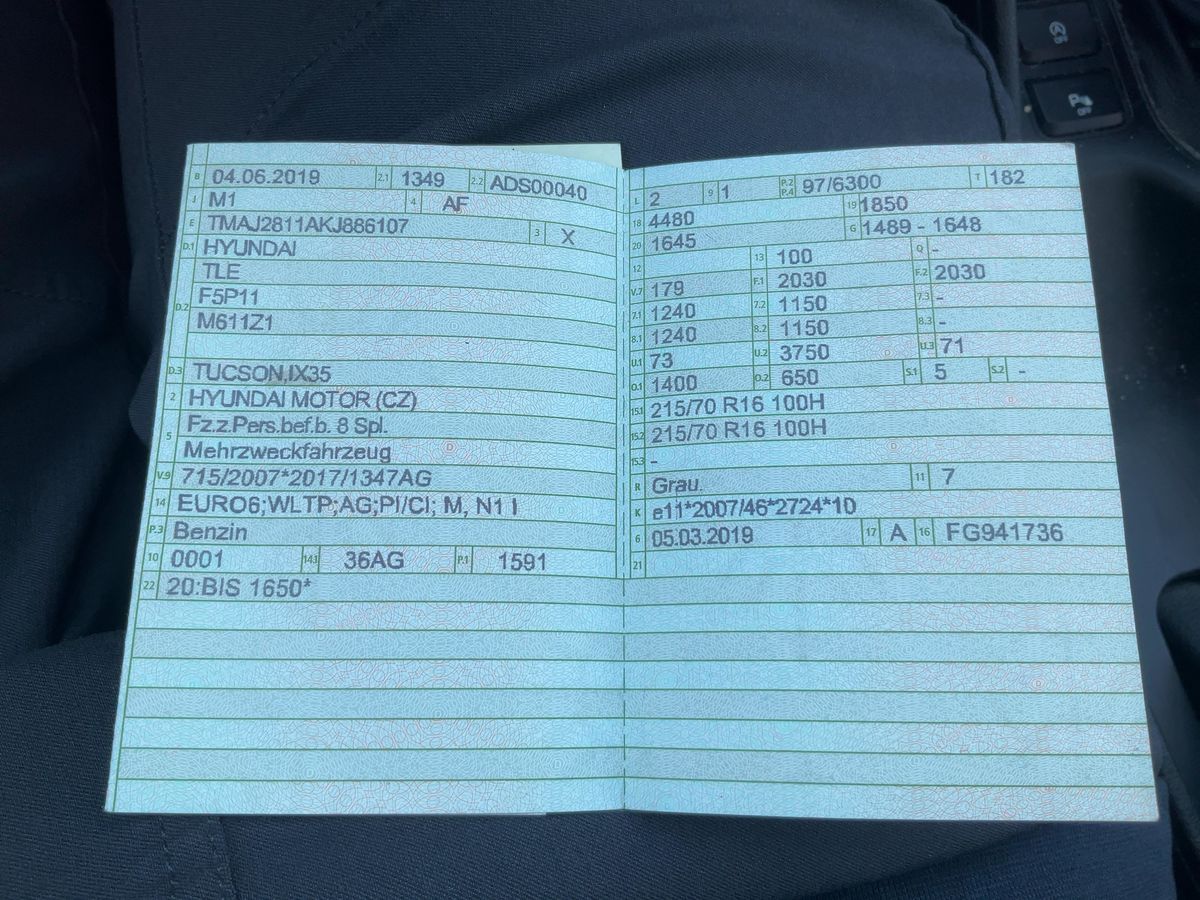 B 04.06.2019 2.1 1349 2.2 ADS00040
J M1 4 AF
E TMAJ2811AKJ886107 3 X
D.1 HYUNDAI
D.2 TLE
F5P11
M611Z1
-
D.3 TUCSON,IX35
2 HYUNDAI MOTOR (CZ)
5 Fz.z.Pers.bef.b. 8 Spl.
Mehrzweckfahrzeug
V.9 715/2007*2017/1347AG
14 EURO6;WLTP;AG;PI/CI; M, N1 I
P.3 Benzin
10 0001 14.1 36AG P.1 1591
22 20:BIS 1650*
L 2 9 1 P.2 P.4 97/6300 T 182
18 4480 19 1850
20 1645 G 1489 - 1648
12 13 100 Q -
V.7 179 F.1 2030 F.2 2030
7.1 1240 7.2 1150 7.3 -
8.1 1240 8.2 1150 8.3 -
U.1 73 U.2 3750 U.3 71
O.1 1400 O.2 650 S.1 5 S.2 -
15.1 215/70 R16 100H
15.2 215/70 R16 100H
15.3 -
R Grau. 11 7
K e11*2007/46*2724*10
6 05.03.2019 17 A 16 FG941736
21